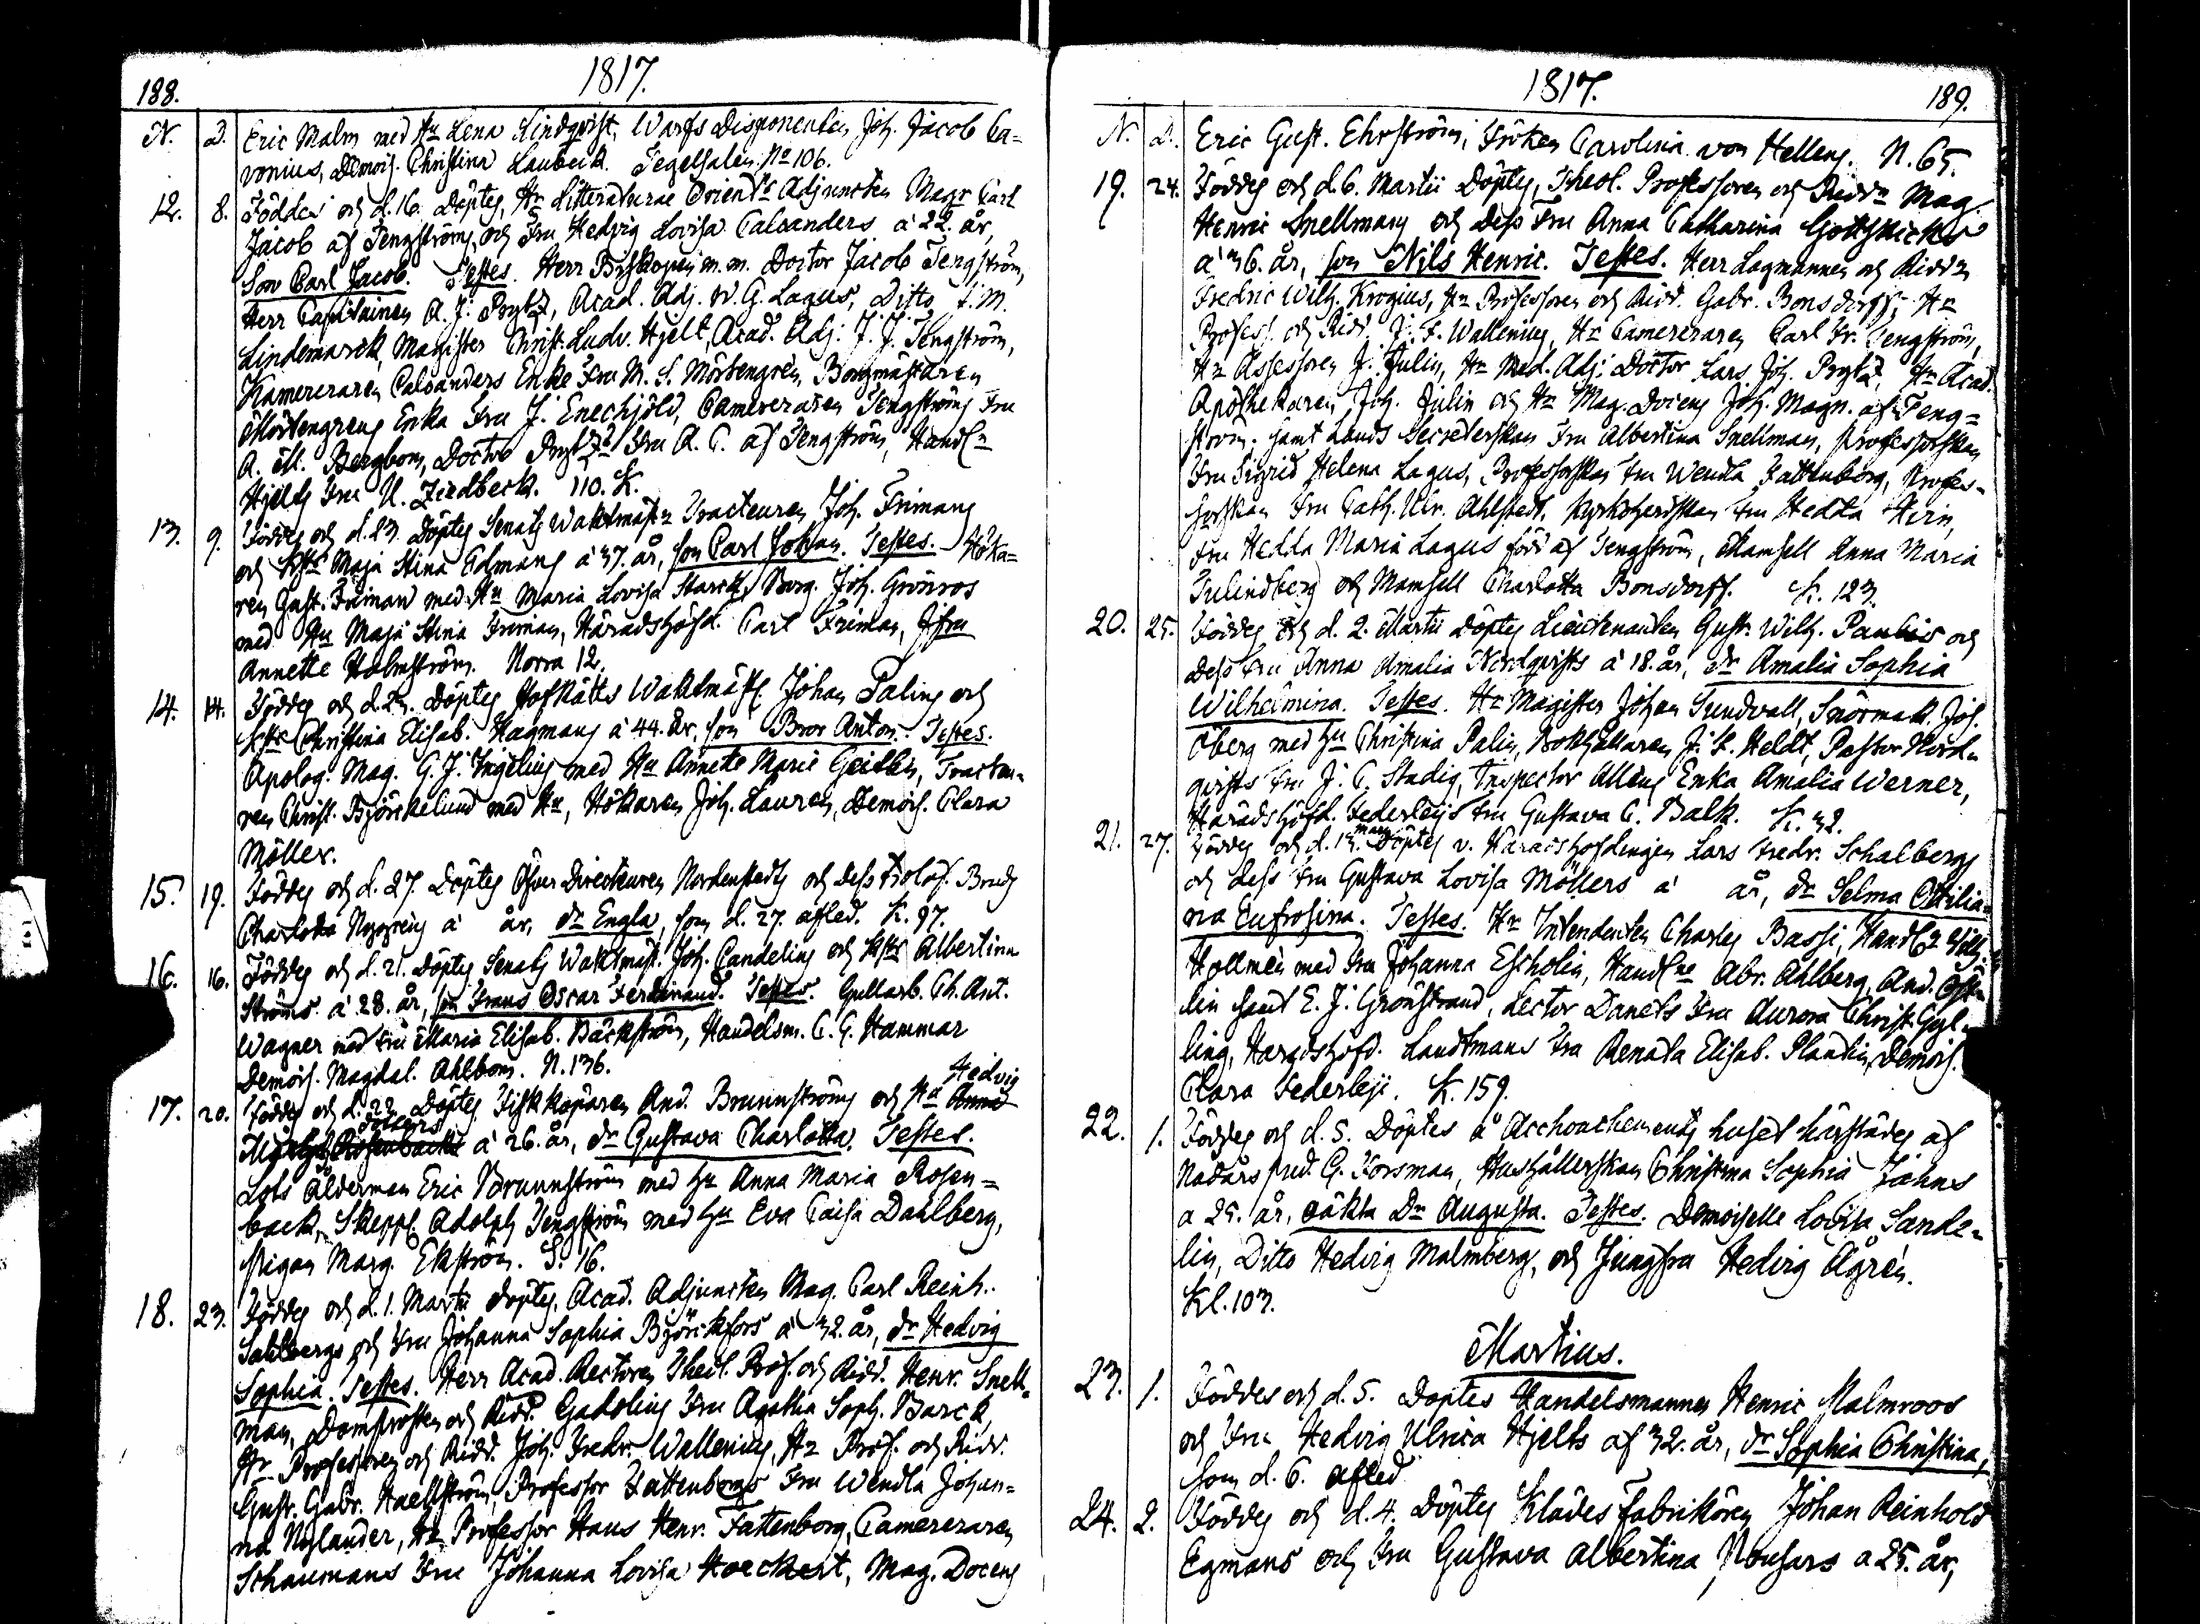 188.
1817.
N. D. Eric Malm med Hu Lena Lindqvist, Warfs Disponenten Joh. Jacob Ca=
vonius, Demois. Christina Laubeck. Tegelsalen No 106.
12. 8. Föddes och d. 16. Döptes, Hr Litteraturae Adjuncten Magr Carl
Jacob af Tengström, och Fru Hedvig Lovisa Caloanders á 22. år,
Son Carl Jacob. Testes. Herr Biskopen m.m. Doctor Jacob Tengström,
Herr Capitainen A. J. Prytz, Acad. Adj. W. G. Lagus, Ditto J. M.
Lindemarck, Magister Christ. Ludv. Hjelt, Acad. Adj: J. J. Tengström,
Kamereraren Caloanders Enke Fru M. S. Mörtengren, Borgmästaren
Mörtengrens Enka Fru J. Enechjöld, Camereraren Tengströms Fru
A. M. Bergbom, Doctor Fru A. C. af Tengström, Handl
Hjelts Fru U. 110. K.
13. 9. Föddes och d. 23. Döptes Senats Waktmäst Tracteuren Joh. Frimans
och Maja Stina Edmans á 37. år, son Carl Johan. Testes. Höka=
ren Gust. Friman med Hu Maria Lovisa Starck, Borg. Joh. Grönros
med Hu Maja Stina Friman, Häradshöfd. Carl Friman, Jfru
Annette Holmström. Norra 12.
14. 14. Föddes och d. 23. Döptes Hofrätts Waktmäst. Johan Palins och
Christina Elisab. Hagmans á 44. år, son Bror Anton. Testes.
Apolog. Mag. G. J. Ingelius med Hu Annete Marie Geitlin, Tracteu=
ren Christ. Björckelund med Hu, Hökaren Joh. Lauren, Demois. Clara
Möller.
15. 19. Föddes och d. 27. Döptes Öfver Directeuren Nordenstedts och Dess
Charlotta Nygrens á år, dr Engla, som d. 27. afled. K. 97.
16. 16. Föddes och d. 21. Döptes Senats Waktmäst. Joh. Candelins och Albertina
Ströms á 28. år, son Frans Oscar Ferdinand. Testes. Gullarb. Ch. Ant.
Wagner med Fru Maria Elisab. Bäckström, Handelsm. C. G. Hammar
Demois. Magdal. Ahlbom. N. 136.
Hedvig
17. 20. Föddes och d. 22. Döptes Fiskköparen And. Brunnströms och Hu Anna
á 26. år, dr Gustava Charlotta. Testes.
Lots Ålderman Eric Brunnström med Hu Anna Maria Rosen=
back, Skepps. Adolph Tengström med Hu Eva Caisa Dahlberg,
Pigan Marg. Ekström. S. 16.
18. 23. Föddes och d. 1. Martii Döptes, Acad. Adjuncten Mag. Carl Reinh.
Sahlbergs och Fru Johanna Sophia Björckfors á 32. år, dr Hedvig
Sophia. Testes. Herr Acad. Rectoren Theol. Prof. och Ridd. Henr. Snell=
man, Domprosten och Ridd. Gadolins Fru Agatha Soph. Barck,
Hr Professoren och Ridd. Joh. Fredr. Wallenius, Hr Prof. och Ridd.
Gust. Gabr. Haellström, Professor Fattenborgs Fru Wendla Johan=
na Nylander, Hr Professor Hans Henr. Fattenborg, Camereraren
Schaumans Fru Johanna Lovisa Hoeckert, Mag. Docens
1817.
189.
N. D. Eric Gust. Ehrström, Fröken Carolina von Hellens. N. 65.
19. 24. Föddes och d. 6. Martii Döptes, Theol. Professoren och Riddn Mag.
Henric Snellmans och Dess Fru Anna Catharina
á 36. år, son Nils Henric. Testes. Herr Lagmannen och Riddn
Fredric Wilh. Krogius, Hr Professoren och Ridd. Gabr. Bonsdorff, Hr
Profess. och Ridd. J. F. Wallenius, Hr Camereraren Carl Fr. Tengström,
Hr Assessoren J. Julin, Hr Med. Adj: Doctor Lars Joh. Prytz, Hr Acad.
Apothekaren Joh. Julin och Hr Mag. Docens Joh. Magn. af Teng=
ström. samt Lands Secreterskan Fru Albertina Snellman, Professorskan
Fru Sigrid Helena Lagus, Professorskan Fru Wendla Fattenborg, Profes=
sorskan Fru Cath. Ulr. Ahlstedt, Kyrkoherdskan Fru Hedda Hirn,
Fru Hedda Maria Lagus född af Tengström, Mamsell Anna Maria
Tulindberg och Mamsell Charlotta Bonsdorff. K. 123.
20. 25. Föddes och d. 2. Martii Döptes Lieutenanten Gust. Wilh. och
Dess Fru Anna Amalia Nordqvists á 18. år, dr Amalia Sophia
Wilhelmina. Testes. Hr Magister Johan Sundvall, Snörmak. Joh.
Öberg med Hu Christina Palin, Bokhållaren J. L. Heldt, Pastor Nord=
qvists Fru J. C. Stadig, Inspector Alléns Enka Amalia Werner,
Häradshöfd. Federleys Fru Gustava C. Balk. K. 32.
21. 27. Föddes och d. 13. Mars Döptes v. Häradshöfdingen Lars Fredr. Schalbergs
och dess Fru Gustava Lovisa Möllers á år, dr Selma Ottilia=
na Eufrosina. Testes. Hr Intendenten Charles Bassi, Handl
Hollmén med Fru Johanna Escholin, Handl Abr. Ahlberg, And.
lin samt E. J. Grönstrand, Lector Danets Fru Aurora Christ. Gyl=
ling, Häradshöfd. Landtmans Fru Renata Elisab. Plantin, Demois.
Clara Federleji. K. 159.
22. 1. Föddes och d. 5. Döptes å Acchouchements huset härstädes af
G. Forsman, Hushållerskan Christina Sophia Jahns
a 25. år, oäkta Dr Augusta. Testes. Demoiselle Lovisa Sande=
lin, Ditto Hedvig Malmberg, och Jungfru Hedvig Ågrén.
Kl. 103.
Martius.
23. 1. Föddes och d. 5. Döptes Handelsmannen Henric Malmroos
och Fru Hedvig Ulrica Hjelts af 32. år, dr Sophia Christina,
som d. 6. afled
24. 2. Föddes och d. 4. Döptes Klädes fabrikören Johan Reinhold
Egmans och Fru Gustava Albertina a 25. år,